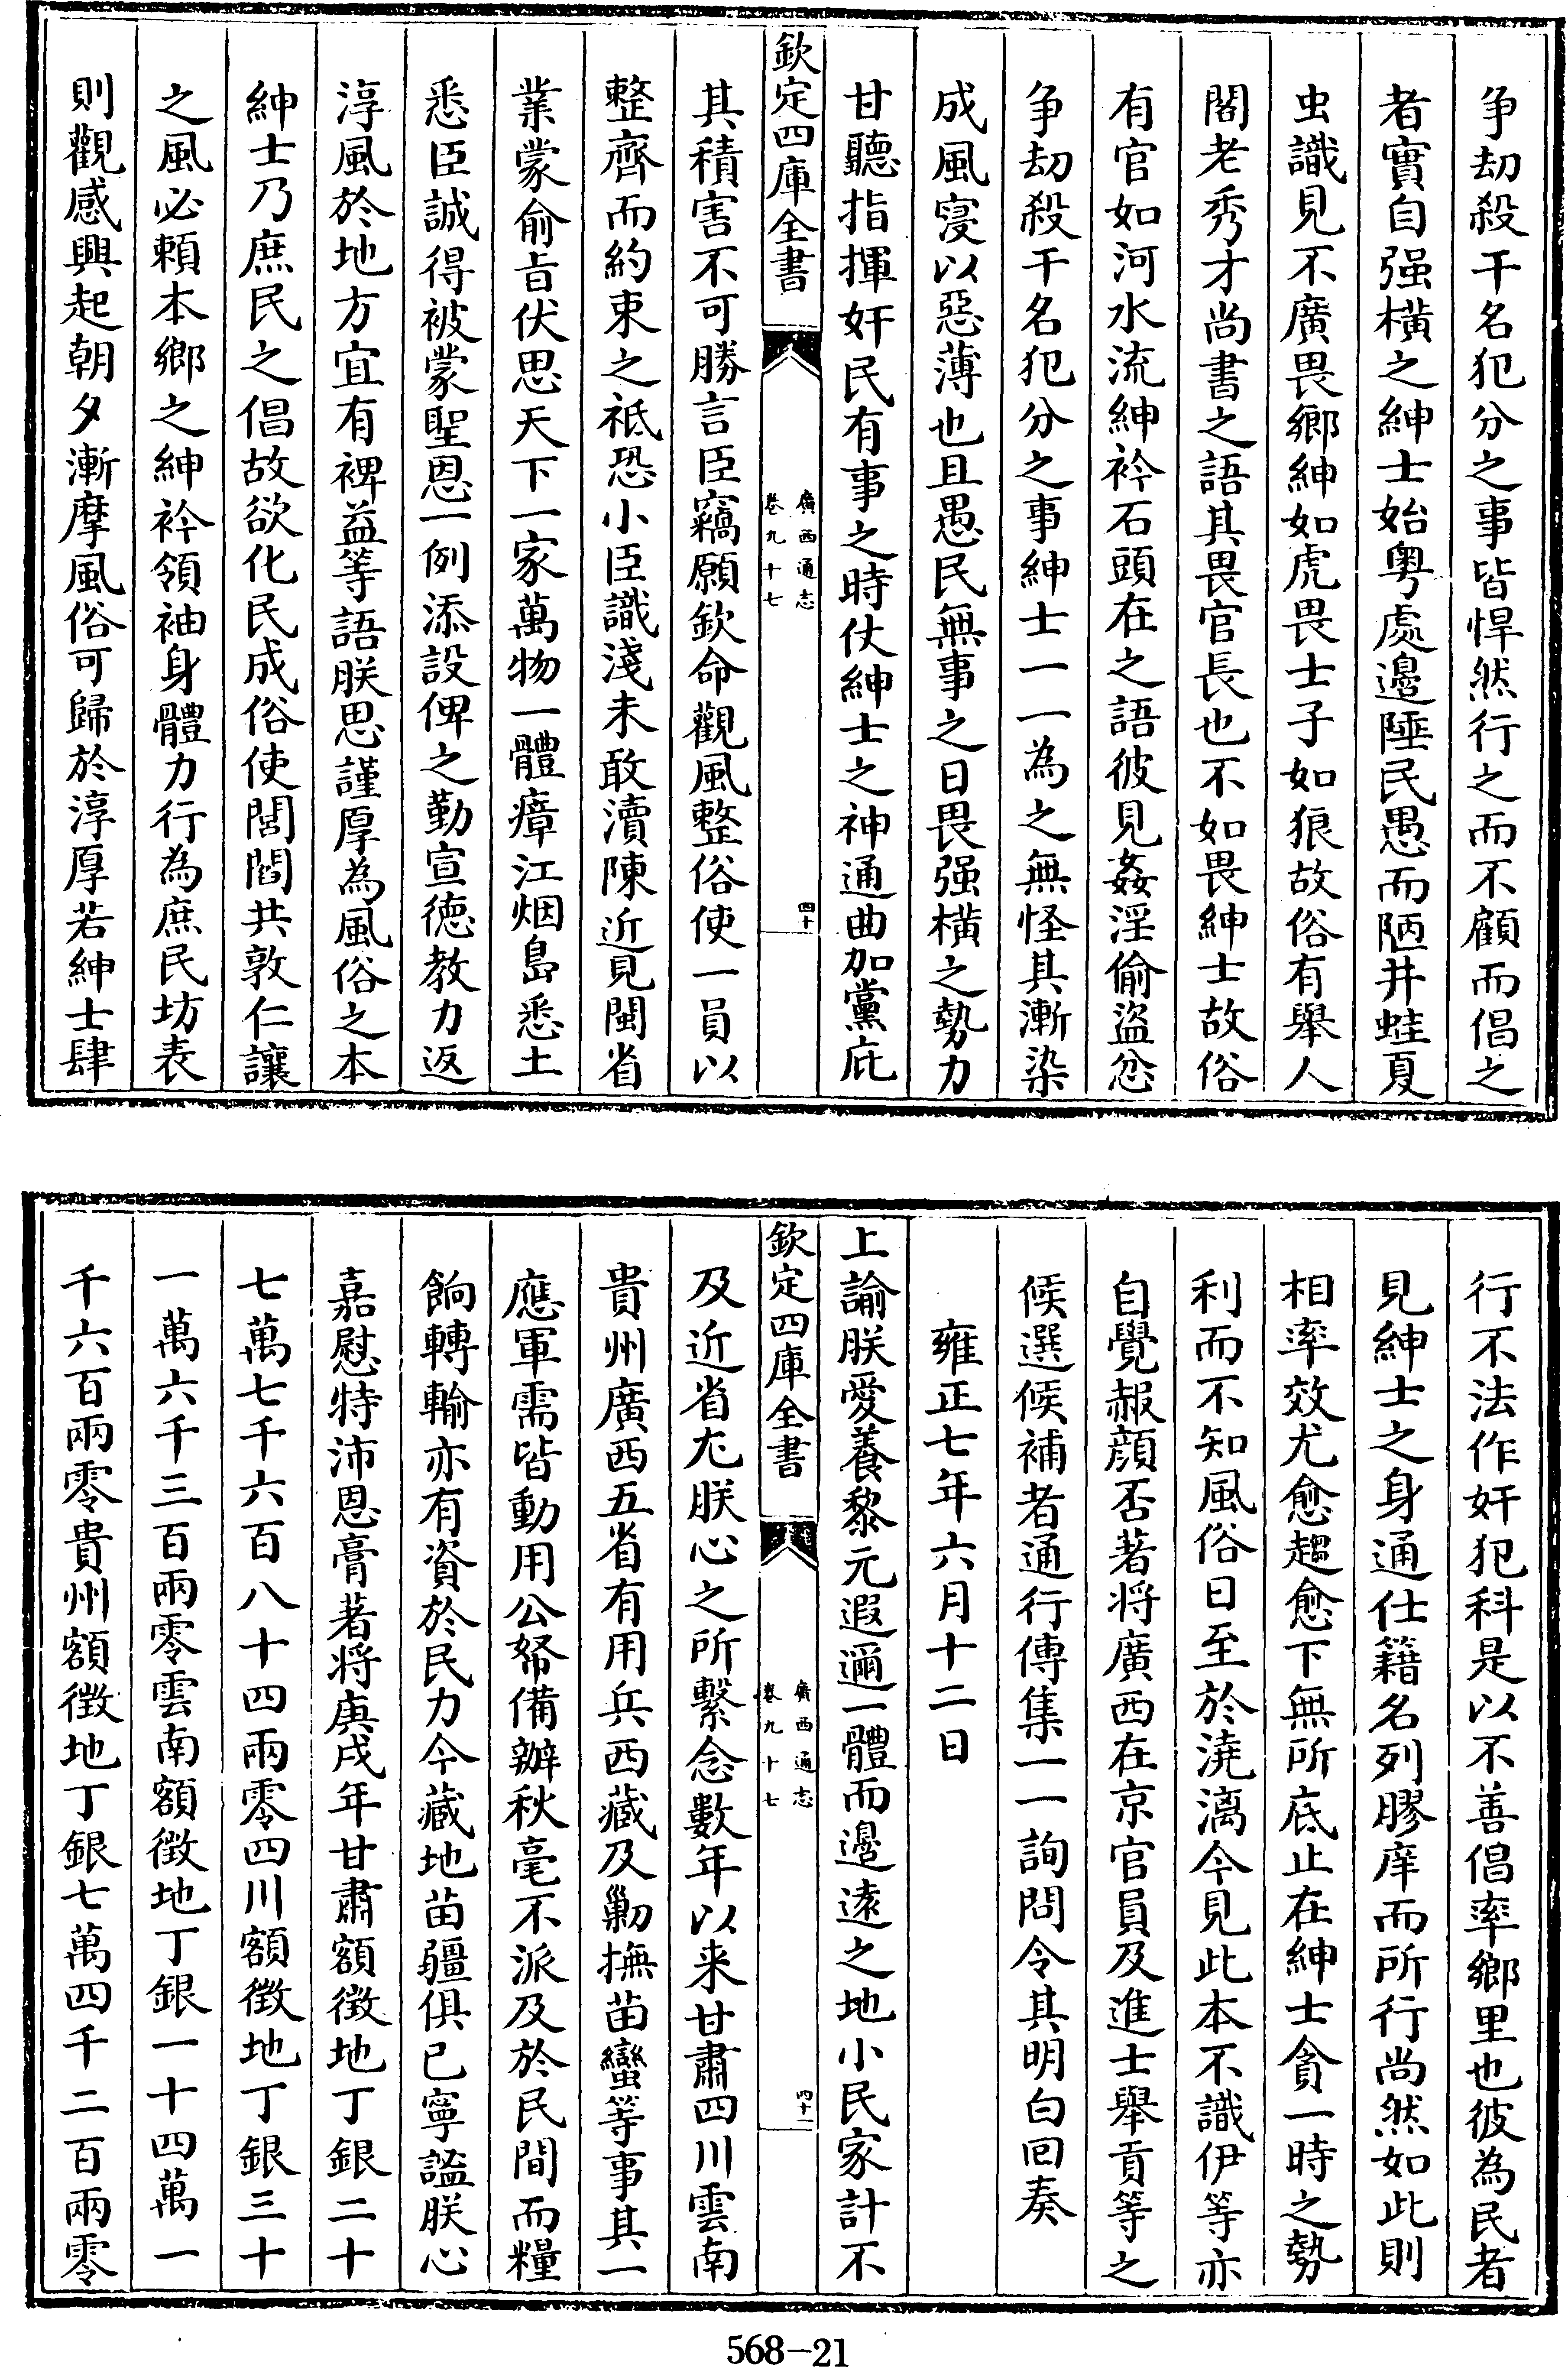 争刼殺干名犯分之事皆悍然行之而不顧而倡之
者實自强横之紳士始粤處邊陲民愚而陋井蛙夏
虫識見不廣畏鄉紳如虎畏士子如狼故俗有舉人
閣老秀才尚書之語其畏官長也不如畏紳士故俗
有官如河水流紳衿石頭在之語彼見姦淫偷盜忿
争刼殺干名犯分之事紳士一一為之無怪其漸染
成風寖以惡薄也且愚民無事之日畏强横之勢力
甘聽指揮奸民有事之時仗紳士之神通曲加黨庇
欽定四庫全書
廣西通志
卷九十七
四十
其積害不可勝言臣竊願欽命觀風整俗使一員以
整齊而約束之祇恐小臣識淺未敢瀆陳近見閩省
業蒙俞㫖伏思天下一家萬物一體瘴江烟島悉土
悉臣誠得被蒙聖恩一例添設俾之勤宣徳教力返
淳風於地方宜有裨益等語朕思謹厚為風俗之本
紳士乃庶民之倡故欲化民成俗使閭閻共敦仁讓
之風必頼本鄉之紳衿領袖身體力行為庶民坊表
則觀感興起朝夕漸摩風俗可歸於淳厚若紳士肆
行不法作奸犯科是以不善倡率鄉里也彼為民者
見紳士之身通仕籍名列膠庠而所行尚然如此則
相率效尤愈趨愈下無所底止在紳士貪一時之勢
利而不知風俗日至於澆漓今見此本不識伊等亦
自覺赧顔否著将廣西在京官員及進士舉貢等之
候選候補者通行傳集一一詢問令其明白回奏
雍正七年六月十二日
上諭朕愛養黎元遐邇一體而邊逺之地小民家計不
欽定四庫全書
廣西通志
卷九十七
四十一
及近省尤朕心之所繫念數年以来甘肅四川雲南
貴州廣西五省有用兵西藏及勦撫苗蠻等事其一
應軍需皆動用公帑備辦秋毫不派及於民間而糧
餉轉輸亦有資於民力今藏地苗疆俱已寧謐朕心
嘉慰特沛恩膏著将庚戌年甘肅額徴地丁銀二十
七萬七千六百八十四兩零四川額徴地丁銀三十
一萬六千三百兩零雲南額徴地丁銀一十四萬一
千六百兩零貴州額徴地丁銀七萬四千二百兩零
568-21